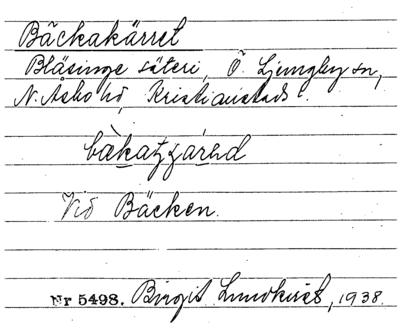 Bäckakärret
Blåsinge säteri, Ö. Ljungby sn,
N. Åsbo hd, Kristianstads l.
Vid Bäcken.
Nr 5498. Birgit Lundkvist, 1938.